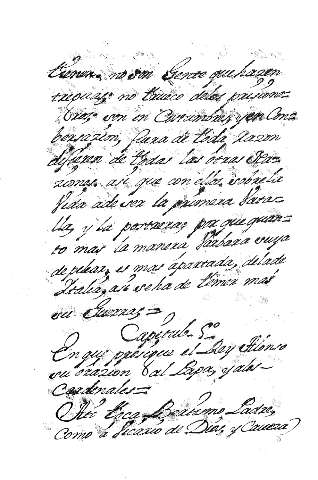 tienen, no son gente que hazen
treguas, no trueco de los prisione-
ros, son en Costumbres, y en Con
bersazion, fuera de toda razon
difieren de todas las otras Na-
ziones, asi, que con ellos sobre la
Vida a de ser la primera Bata-
lla, y la postrera, por que quan-
to mas la manera Barbara suya
de pelear, es mas apartada, de la de
Italia, asi se ha de temer mas
su Guerra,=
Capitulo 5º
En que prosigue el Rey Alonso
su orazion al Papa, y a los
Cardenales=
A ti toca Beatisimo Padre,
como a Vicario de Dios, y Caveza